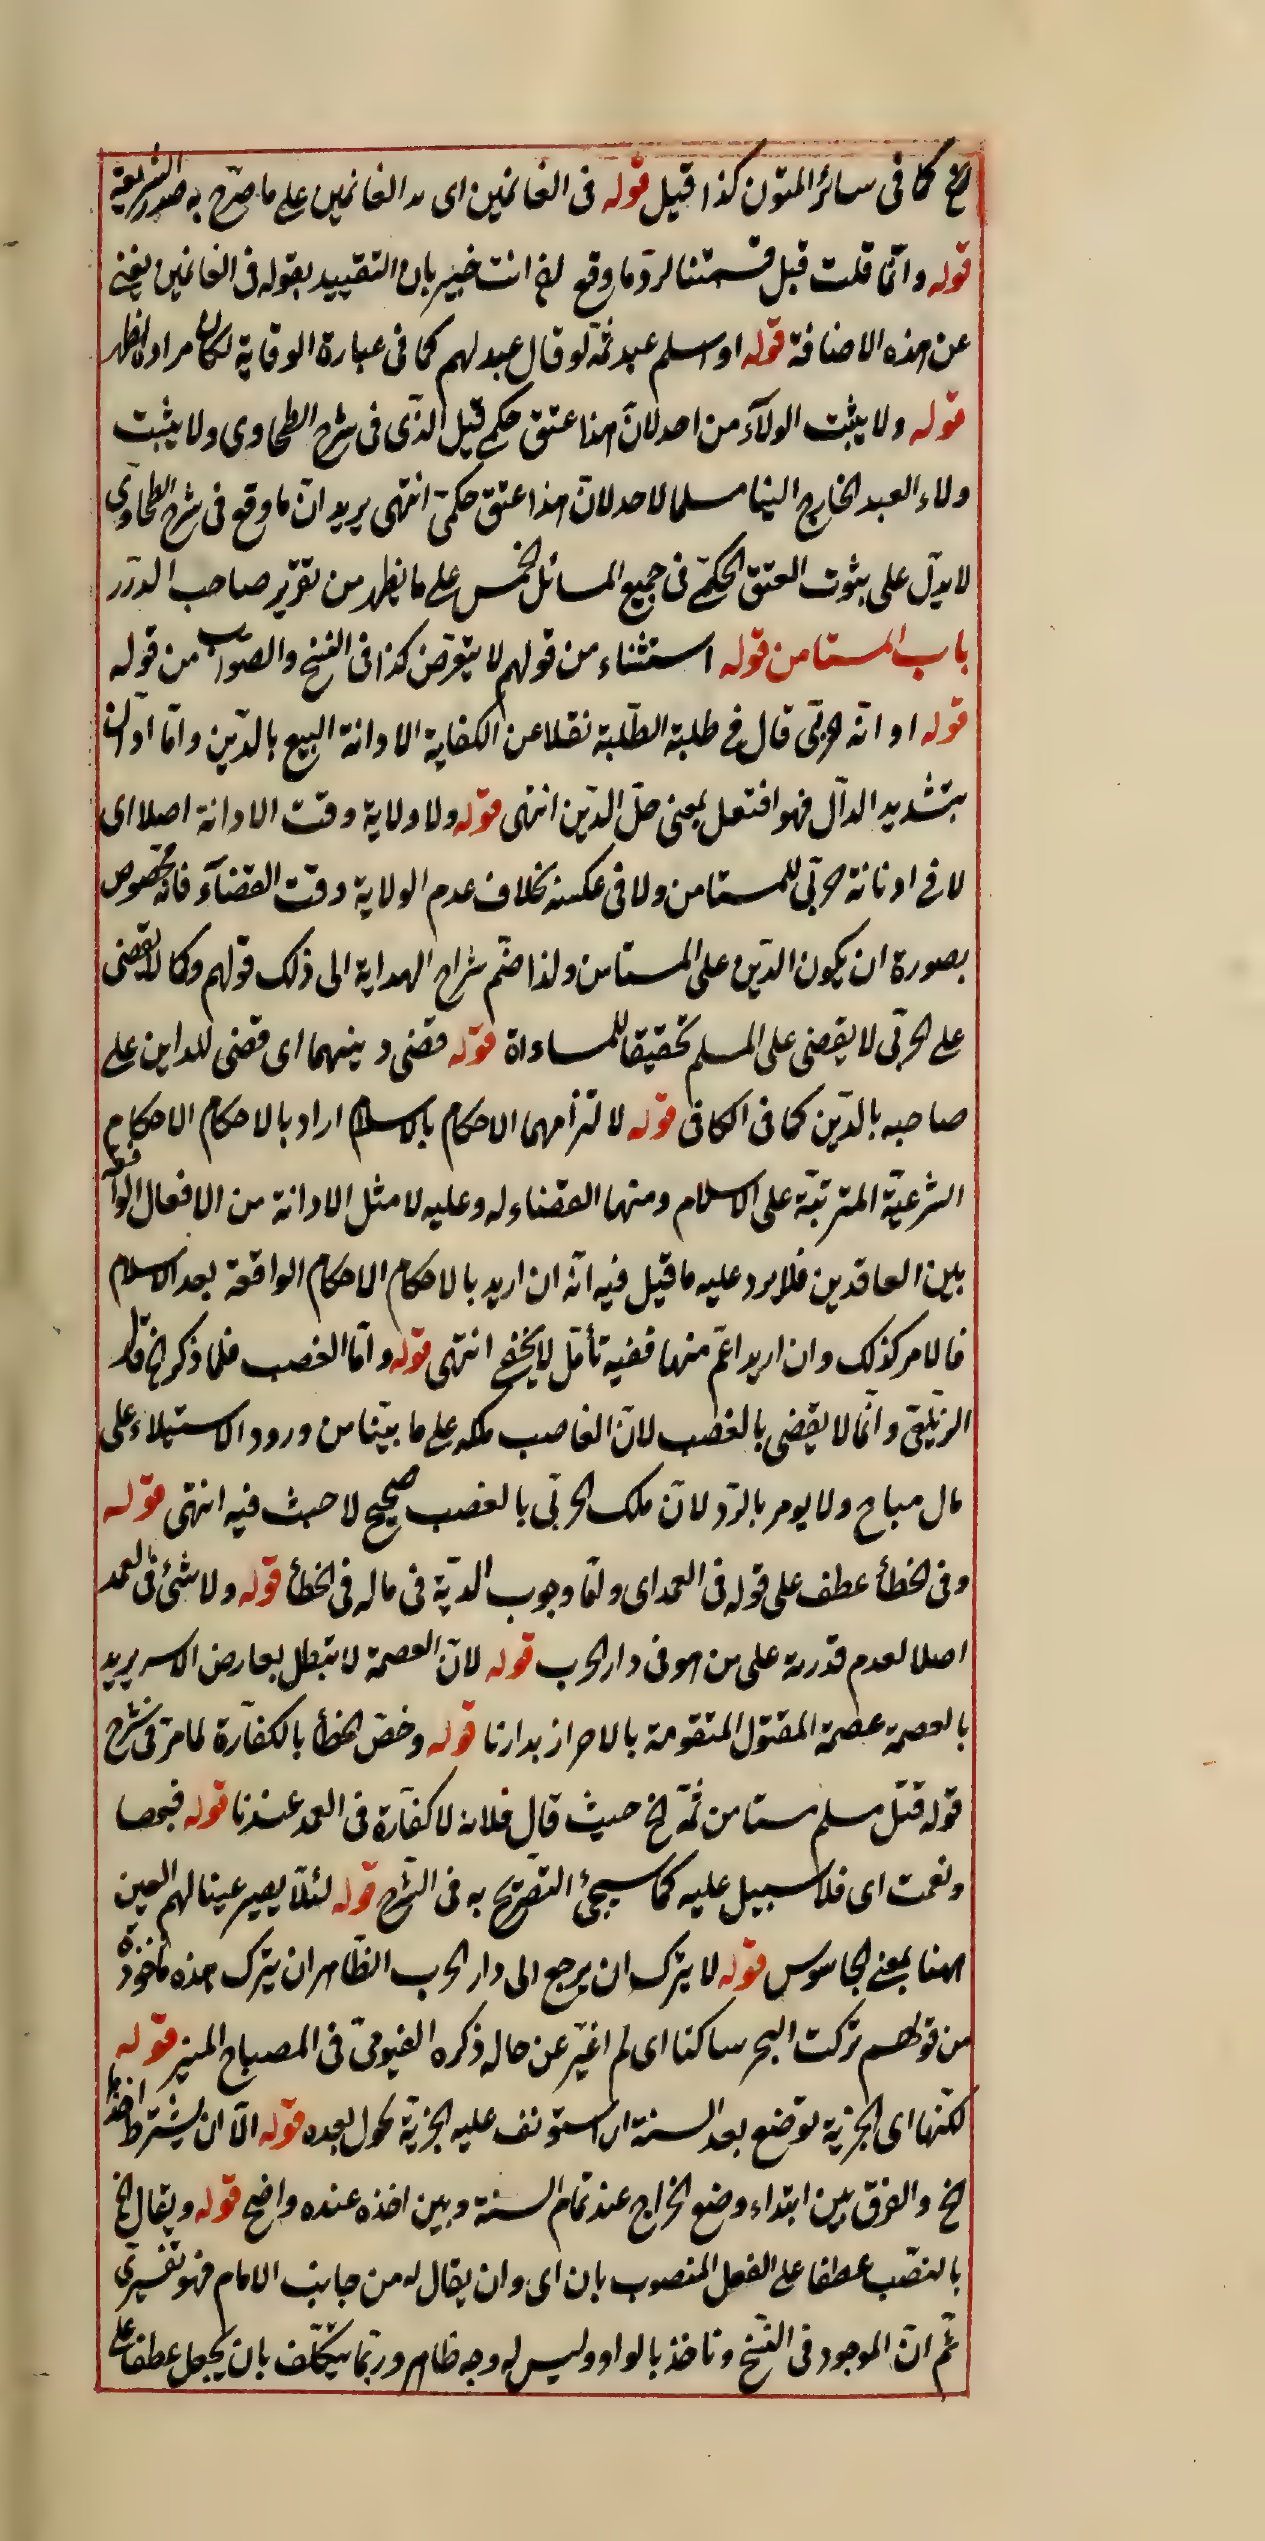 الخ كما فى سائر المتون كذا قيل قوله فى الغانمين اى يد الغانمين على ما صرّح به صدر الشريعة
قوله وانّما قلت قبل قسمتنا لردّ ما وقع الخ انت خبير بان التقييد بقوله فى الغانمين يغنى
عن هذه الاضافة قوله او اسلم عبد ثمّه لو قال عبد لهم كما فى عبارة الوقاية لكان مراده اظهر
قوله ولا يثبت الولآء من احد لانّ هذا عتق حكمى قيل الذّى فى شرح الطحاوى ولا يثبت
ولاء العبد الخارج الينا مسلما لاحد لانّ هذا عتق حكمىّ انتهى يريد انّ ما وقع فى شرح الطحاوى
لا يدلّ على ثبوت العتق الحكمّى فى جميع المسائل الخمس على ما يظهر من تقرير صاحب الدرّر
باب المستامن قوله استثناء من قولهم لا يتعرّض كذا فى النسخ والصواب من قوله
قوله او ادانه حربّى قال فى طلبة الطّلبة نقلا عن الكفاية الادانة البيع بالدّين وامّا ادّان
بتشديد الدّال فهو افتعل بمعنى حلّ الدّين انتهى قوله ولا ولاية وقت الادانة اصلا اى
لا فى ادانة حربّى للمستامن ولا فى عكسه بخلاف عدم الولاية وقت القضآء فانّه مخصوص
بصورة ان يكون الدّين على المستامن ولذا ضمّ شراح الهداية الى ذلك قولهم وكما لا يقضى
على الحربّى لا يقضى على المسلم تحقيقا للمساواة قوله قضى بينهما اى قضى للداين على
صاحبه بالدّين كما فى الكافى قوله لالتزامهما الاحكام بالاسلام اراد بالاحكام الاحكام
الشرعيّة المترتبّة على الاسلام ومنها القضاء له وعليه لا مثل الادانة من الافعال الواقعة
بين العاقدين فلا يرد عليه ما قيل فيه انّه ان اريد بالاحكام الاحكام الواقعة بعد الاسلام
فالامر كذلك وان اريد اعمّ منها ففيه تأمّل لا يخفى انتهى قوله وامّا الغصب فلما ذكر الخ قال
الزيلعىّ وانّما لا يقضى بالغصب لانّ الغاصب ملكه على ما بيّنا من ورود الاستيلاء على
مال مباح ولا يومر بالرّد لانّ ملك الحربّى بالغصب صحيح لا خبث فيه انتهى قوله
وفى الخطأ عطف على قوله فى العمد اى ولمّا وجوب الديّة فى ماله فى الخطأ قوله ولا شئ فى العمد
اصلا لعدم قدرته على من هو فى دار الحرب قوله لانّ العصمة لا تبطل بعارض الاسر يريد
بالعصمة عصمة المقتول المتقومة بالاحراز بدارنا قوله وخصّ الخطأ بالكفاّرة لما مرّ فى شرح
قوله قتل مسلم مستامن ثمّه الخ حيث قال فلانه لا كفاّرة فى العمد عندنا قوله فبها
ونعمت اى فلا سبيل عليه كما سيجئ التصّريح به فى الشّرح قوله لئلّا يصير عينا لهم العين
ههنا بمعنى الجاسوس قوله لا يترك ان يرجع الى دار الحرب الظّاهر ان يترك هذه مأخوذة
من قولهم تركت البحر ساكنا اى لم اغيّر عن حاله ذكره الفيومىّ فى المصباح المنير قوله
لكنّها اى الجزية توضع بعد السنة اى استونف عليه الجزيّة لحول بعده قوله الّا ان يشترط اخذها
الخ والفرق بين ابتداء وضع الخراج عند تمام السنة وبين اخذه عنده واضح قوله ويقال الخ
بالنصّب عطفا على الفعل المنصوب بان اى وان يقال له من جانب الامام فهو تفسيرىّ
ثمّ انّ الموجود فى النسّخ وناخذ بالواو وليس له وجه ظاهر وربّما يتكلّف بان يجعل عطفا على